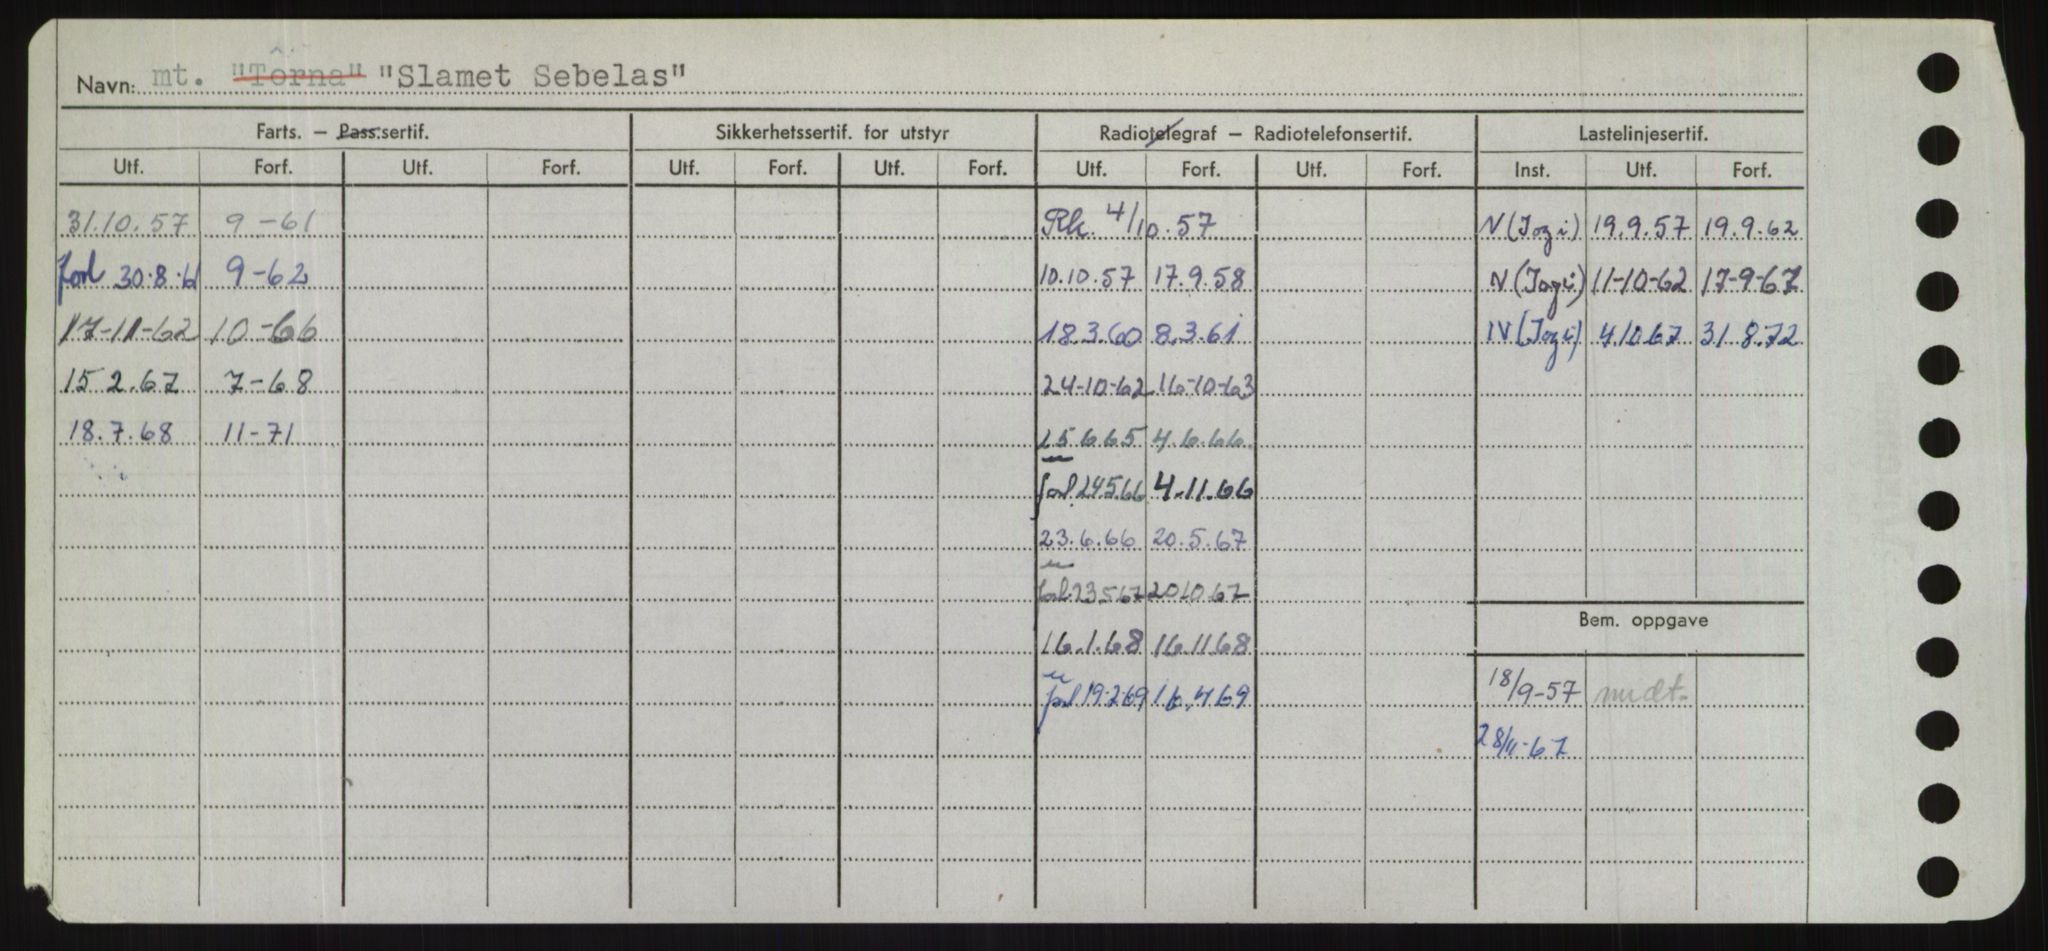 Navn: mt. "Torna" "Slamet Sebelas"
Farts. – Pass.sertif. Sikkerhetssertif. for utstyr Radiotelegraf – Radiotelefonsertif. Lastelinjesertif.
Utf. Forf. Utf. Forf. Utf. Forf. Utf. Forf. Utf. Forf. Utf. Forf. Inst. Utf. Forf.
31.10.57 9-61 Rk. 4/10.57 N (Jogi) 19.9.57 19.9.62
forl 30.8.61 9-62 10.10.57 17.9.58 N (Jogi) 11-10-62 17-9-67
17-11-62 10-66 18.3.60 8.3.61 N (Jogi) 4.10.67 31.8.72
15.2.67 7-68 24-10-62 16-10-63
18.7.68 11-71 15.6.65 4.6.66
forl 24.5.66 4.11.66
23.6.66 20.5.67
forl. 23.5.67 20.10.67
Bem. oppgave
16.1.68 16.11.68
18/9-57
forl 19.2.69 16.4.69
28/11-67